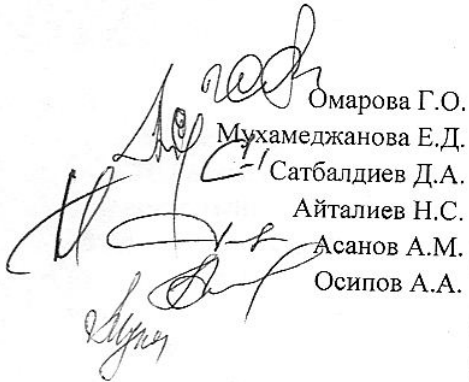 Омарова Г.О.
Мухамеджанова Е.Д.
Сатбалдиев Д.А.
Айталиев Н.С.
Асанов А.М.
Осипов А.А.